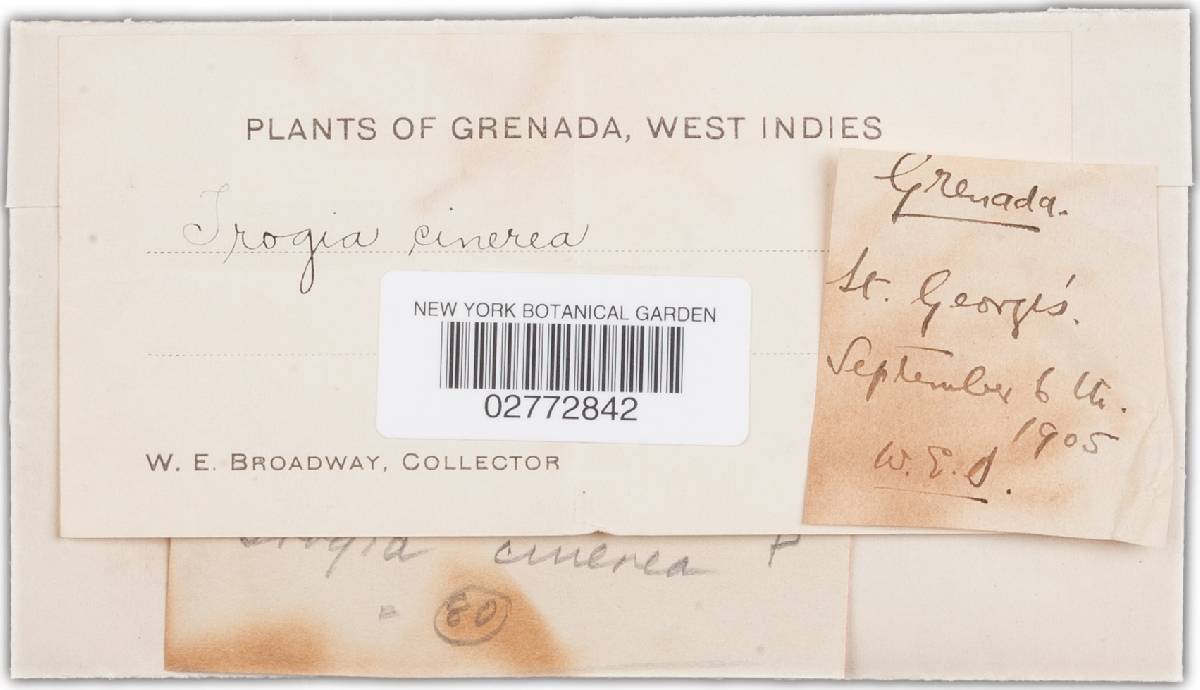 PLANTS OF GRENADA, WEST INDIES
Trogia cinerea
NEW YORK BOTANICAL GARDEN
02772842
W. E. BROADWAY, COLLECTOR
Grenada.
St. George's.
September 6th.
1905
W. E.
Trogia cinerea P
= 80